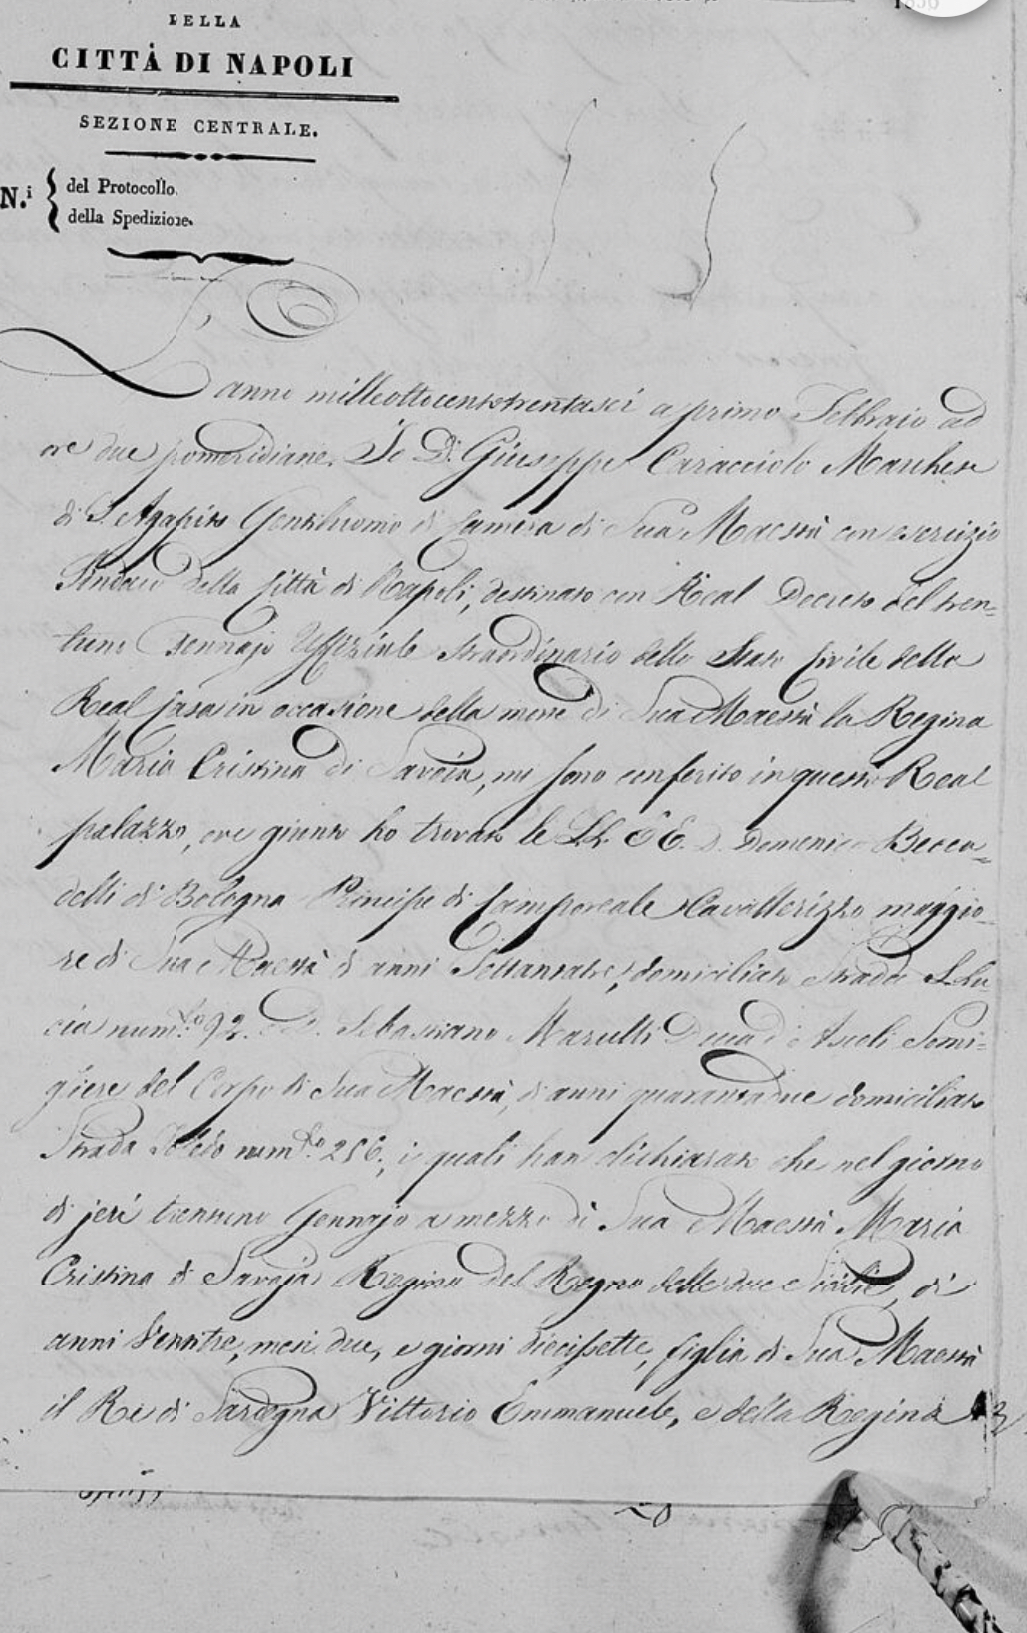 DELLA
CITTÀ DI NAPOLI
SEZIONE CENTRALE.
N.i { del Protocollo.
della Spedizione.
L'anno milleottocentotrentasei a primo Febbraio ad
ore due pomeridiane. Io D. Giuseppe Caracciolo Marchese
di S. Agapito Gentiluomo di Camera di Sua Maestà con esercizio
Sindaco della Città di Napoli, destinato con Real Decreto del tren=
tuno Gennajo Uffiziale straordinario dello Stato Civile della
Real Casa in occasione della morte di Sua Maestà la Regina
Maria Cristina di Savoia, mi sono conferito in questo Real
palazzo, ove giunto ho trovato le LL. EE. D. Domenico Becca=
delli di Bologna Principe di Camporeale Cavallerizzo maggio=
re di Sua Maestà di anni Settantatre, domiciliato Strada S. Lu=
cia num.º 92. e D. Sebastiano Marulli Duca d'Ascoli Somi=
gliere del Corpo di Sua Maestà, di anni quarantadue domiciliato
Strada Toledo num.º 256, i quali han dichiarato che nel giorno
di jeri trentuno Gennajo a mezzo dì Sua Maestà Maria
Cristina di Savoja Regina del Regno delle due Sicilie, di
anni Ventitre, mesi due, e giorni diecissette, figlia di Sua Maestà
il Re di Sardegna Vittorio Emmanuele, e della Regina